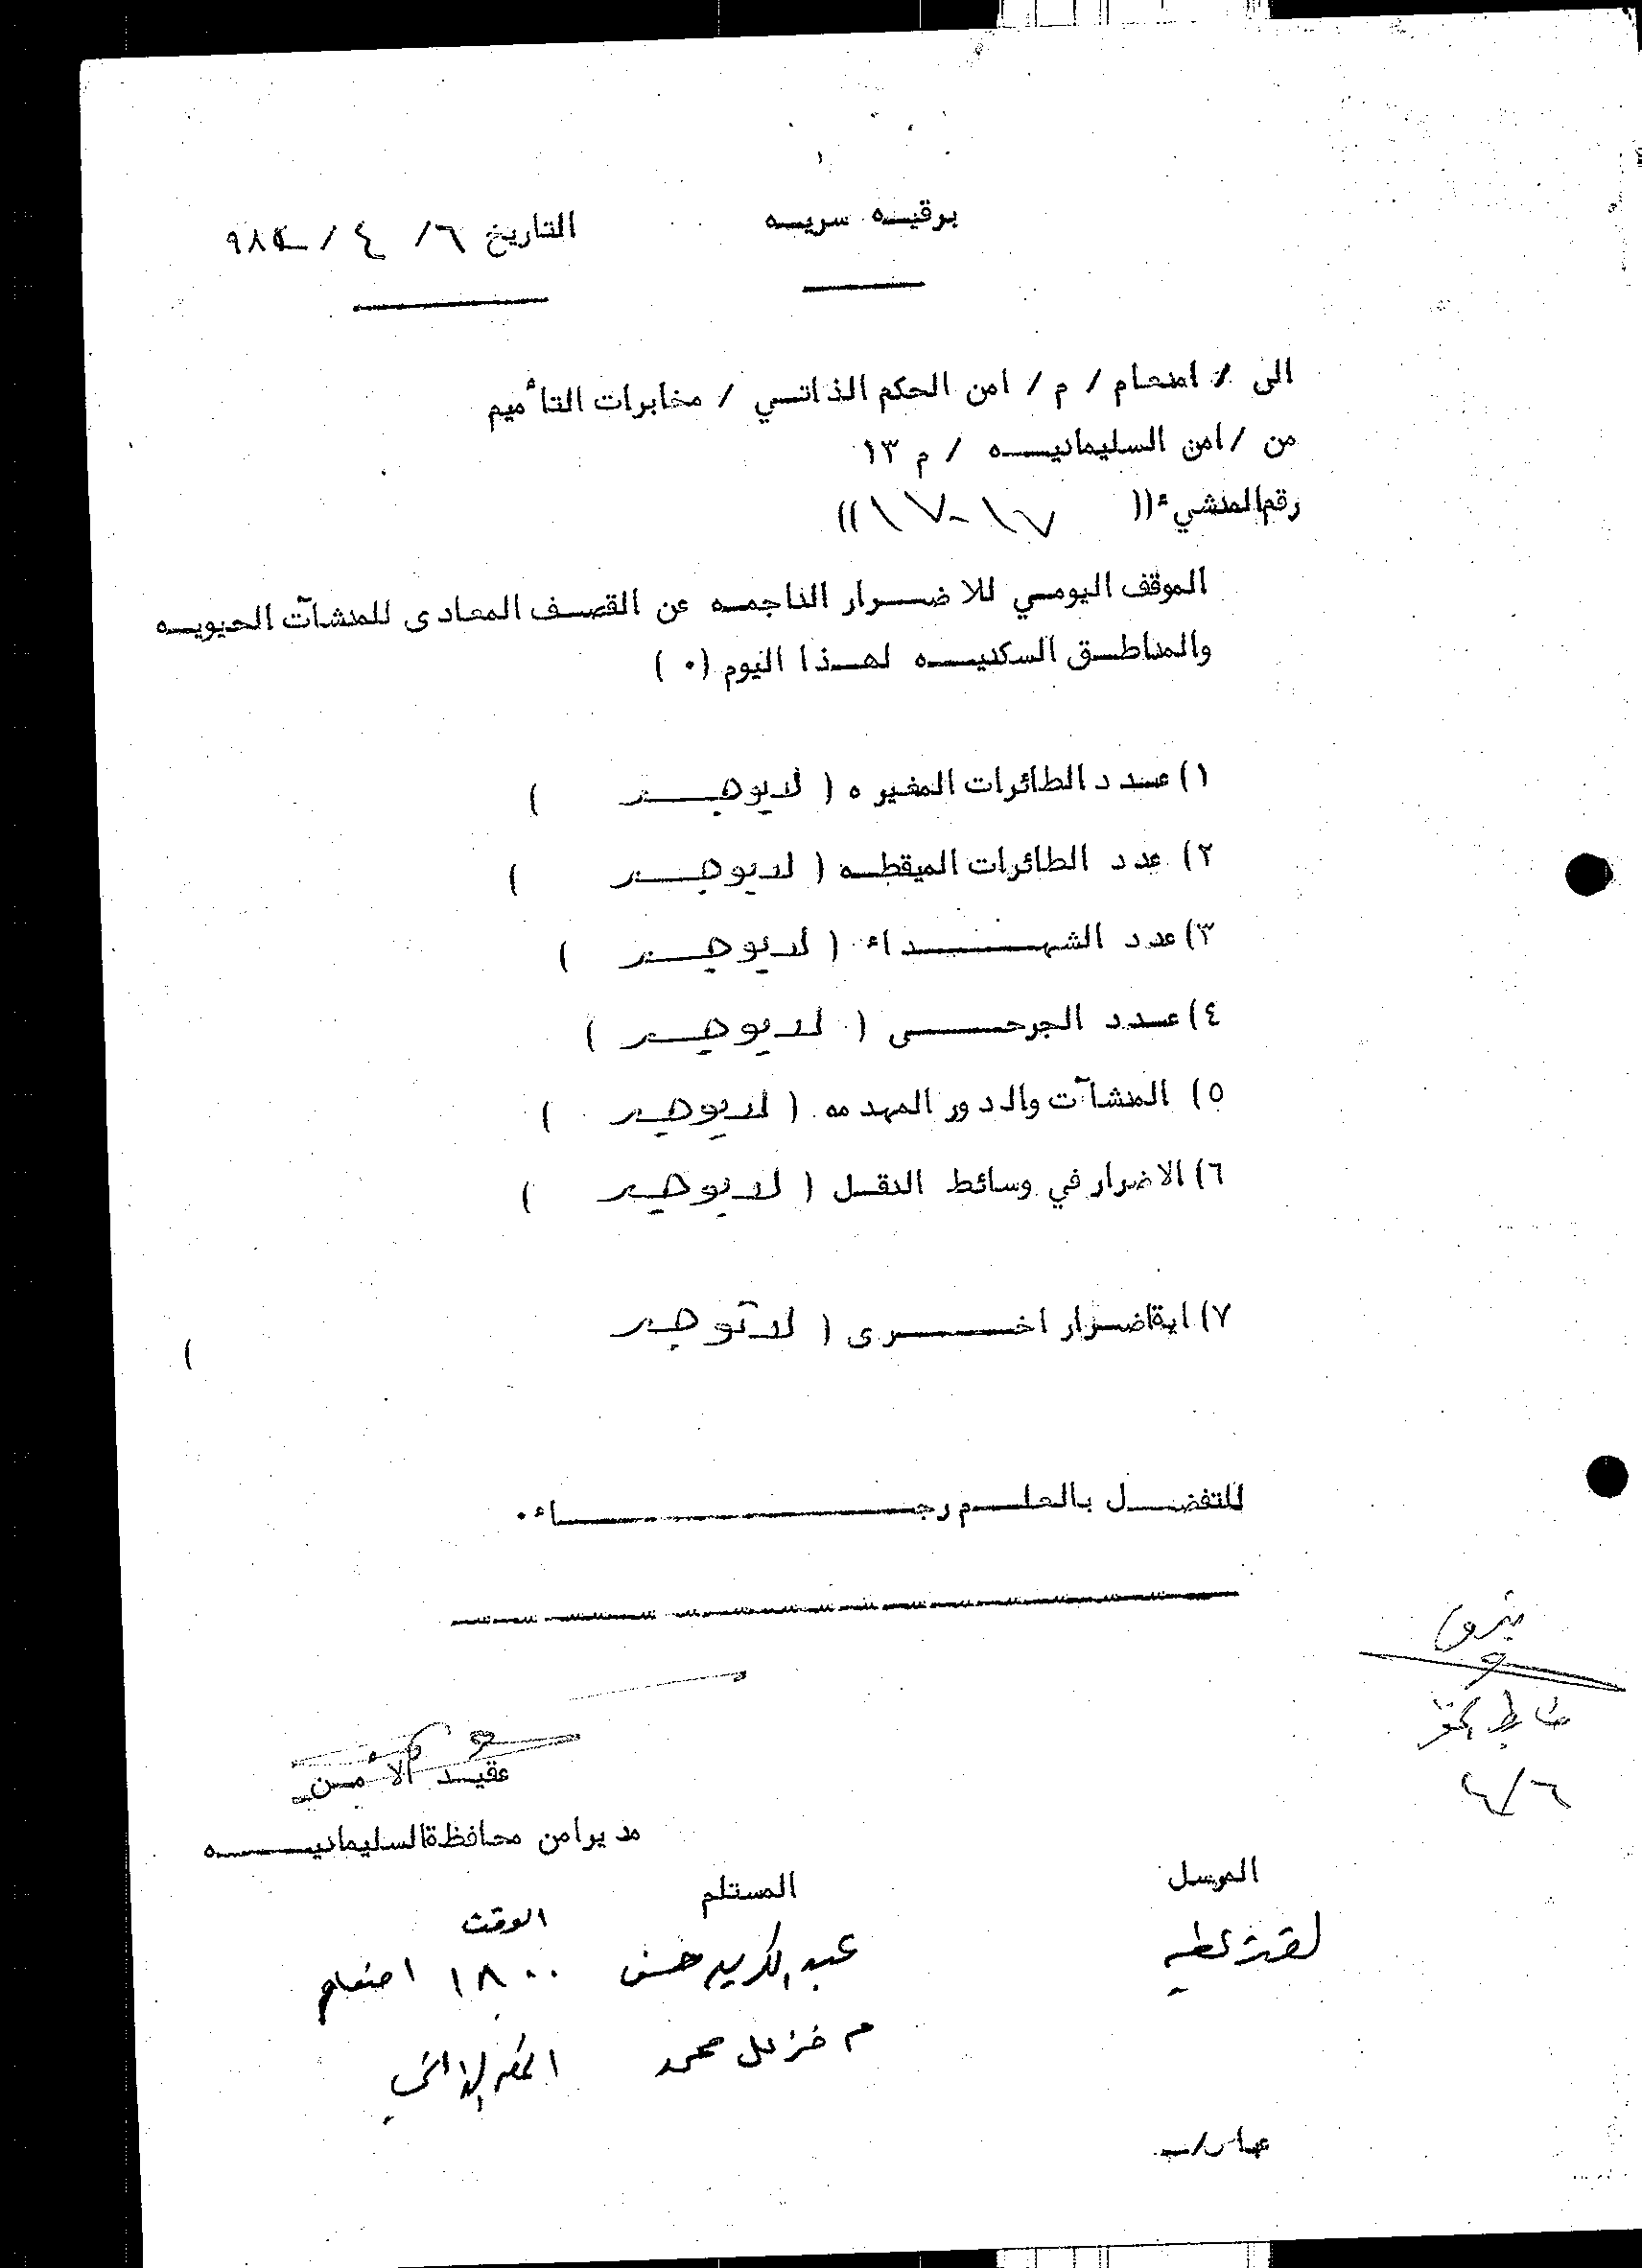 برقيه سريه
التاريخ ٦/ ٤ / ٩٨
الى / امنعام / م / امن الحكم الذاتي / مخابرات التأميم
من / امن السليمانيه / م ١٣
رقم المنشيء (( ١٧ـ١٧ ))
الموقف اليومي للاضرار الناجمه عن القصف المعادى للمنشآت الحيويه
والمناطق السكنيه لهذا اليوم (٠ )
١) عدد الطائرات المغيره ( لايوجد )
٢) عدد الطائرات الميقطه ( لايوجد )
٣) عدد الشهداء ( لايوجد )
٤) عدد الجرحى ( لايوجد )
٥) المنشآت والدور المهدمه ( لايوجد )
٦) الاضرار في وسائط النقل ( لايوجد )
٧) اية اضرار اخرى ( لاتوجد )
للتفضل بالعلم رجاء٠
٦/٤
عقيد الأمن
مدير امن محافظة السليمانيه
المرسل
المستلم
الوقت
عبد الكريم حسن
١٨٠٠ امنعام
م خزعل محمد
الحكم الذاتي